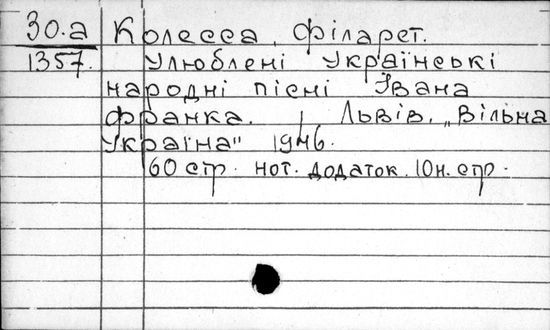 30.а Колесса, Філарет.
1357. Улюблені Українські
народні пісні Івана
Франка. Львів, „Вільна
Україна" 1946.
60 стр. нот. додаток. 10н. стр.